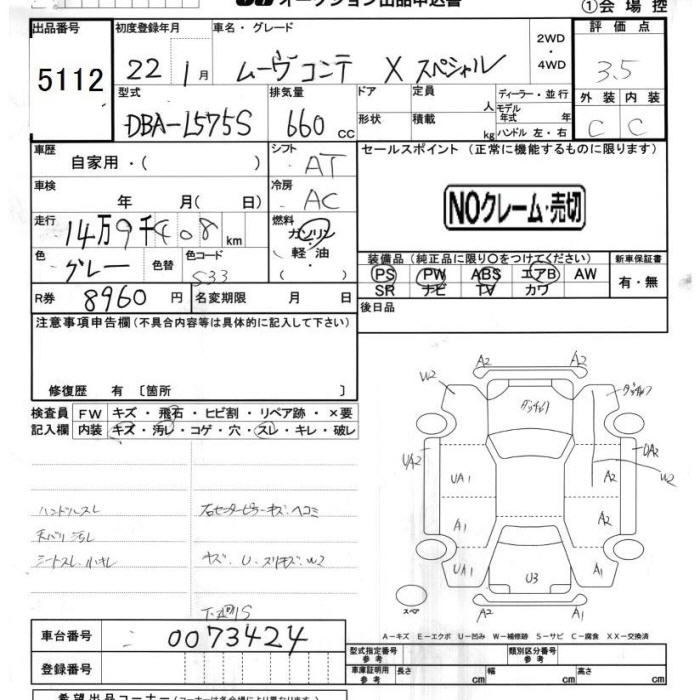 オークション出品申込書 ①会場控
出品番号 初度登録年月 車名・グレード 2WD・4WD 評価点
5112 22 1月 ムーヴコンテ X スペシャル 3.5
型式 排気量 ドア 定員 人 ディーラー・並行 外装 内装
DBA-L575S 660cc 形状 積載 kg モデル年式 年 ハンドル 左・右 C C
車歴 自家用・( ) シフト AT セールスポイント (正常に機能するものに限ります)
車検 年 月( 日) 冷房 AC
NOクレーム・売切
走行 14万9千408km 燃料 ガソリン・軽油・( )
色 グレー 色替 色コード S33 装備品 (純正品に限り○をつけてください) 新車保証書
PS PW ABS エアB AW 有・無
SR ナビ TV カワ
R券 8960円 名変期限 月 日 後日品
注意事項申告欄 (不具合内容等は具体的に記入して下さい)
修復歴 有 [箇所 ]
検査員 FW キズ・飛石・ヒビ割・リペア跡・×要
記入欄 内装 キズ・汚レ・コゲ・穴・スレ・キレ・破レ
A2 A2
W2
UA2 UA1 A2 UA2
W2
A1 A2
UA1 U3 A1
スペア A2 A1
ハンドルスレ 右センターピラーキズ、ヘコミ
天バリ汚レ
A-キズ E-エクボ U-凹み W-補修跡 S-サビ C-腐食 XX-交換済
車台番号 0073424 型式指定番号 参考 類別区分番号 参考
登録番号 車庫証明用 参考 長さ cm 幅 cm 高さ cm
希望出品コーナー